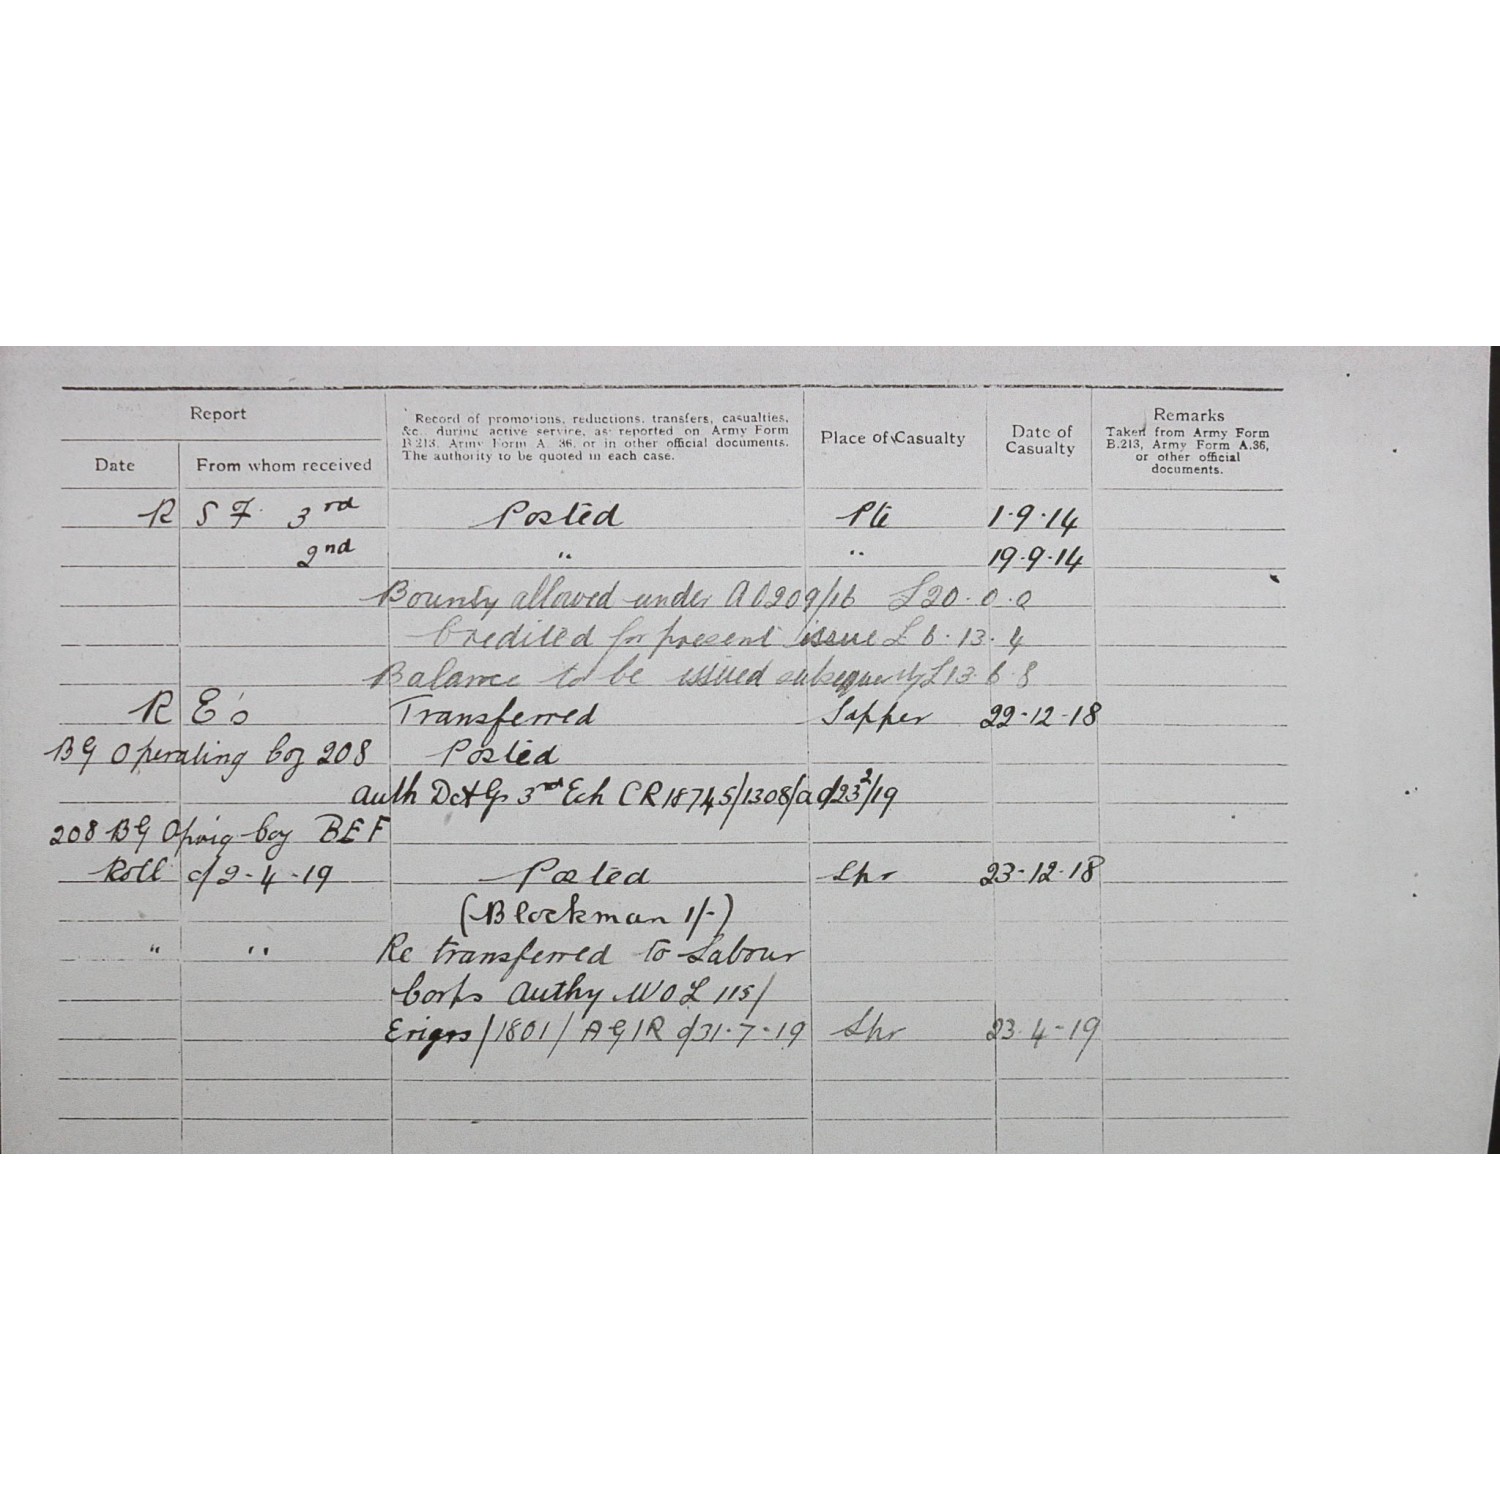 Report
Record of promotions, reductions, transfers, casualties,
&c., during active service, as reported on Army Form
B.213, Army Form A. 36, or in other official documents.
The authority to be quoted in each case.
Place of Casualty
Date of
Casualty
Remarks
Taken from Army Form
B.213, Army Form A.36,
or other official
documents.
Date From whom received
R S F. 3rd Posted Pte 1.9.14
2nd " " 19.9.14
Bounty allowed under AO209/16 £20.0.0
Credited for present issue £6.13.4
Balance to be issued subsequently £13.6.8
R E's Transferred Sapper 22-12-18
BG Operating Coy 208 Posted
Auth 3rd Ech CR18745/1308/a d/23/2/19
208 BG Coy BEF
Roll d/2-4-19 Posted Spr 23-12-18
(Blockman 1/-)
" " Re transferred to Labour
Corps Authy WOL 115/
Engrs/1801/AG1R d/31-7-19 Spr 23-4-19